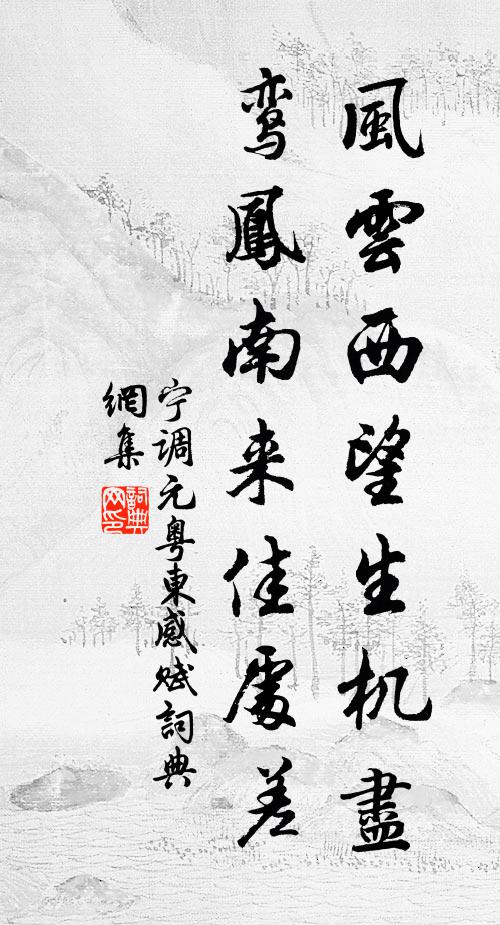 風雲西望生机盡
鸾鳳南来佳處差
宁调元粤東感赋詞典
網集
詞典
网印